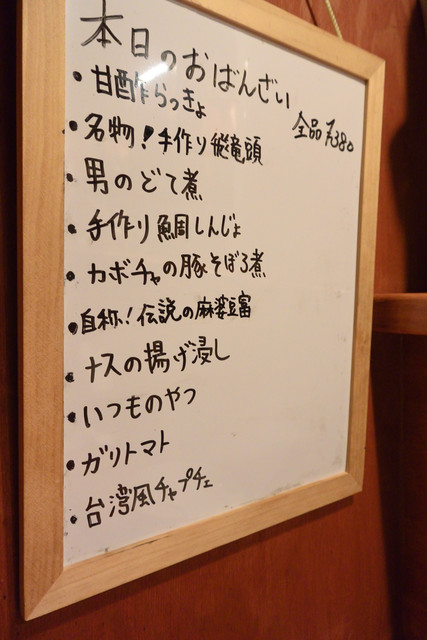 本日のおばんざい
全品 ¥380
・甘酢らっきょ
・名物!手作り縦竜頭
・男のどて煮
・手作り鯛しんじょ
・カボチャの豚そぼろ煮
・自称!伝説の麻婆豆富
・ナスの揚げ浸し
・いつものやつ
・ガリトマト
・台湾風チャプチェ